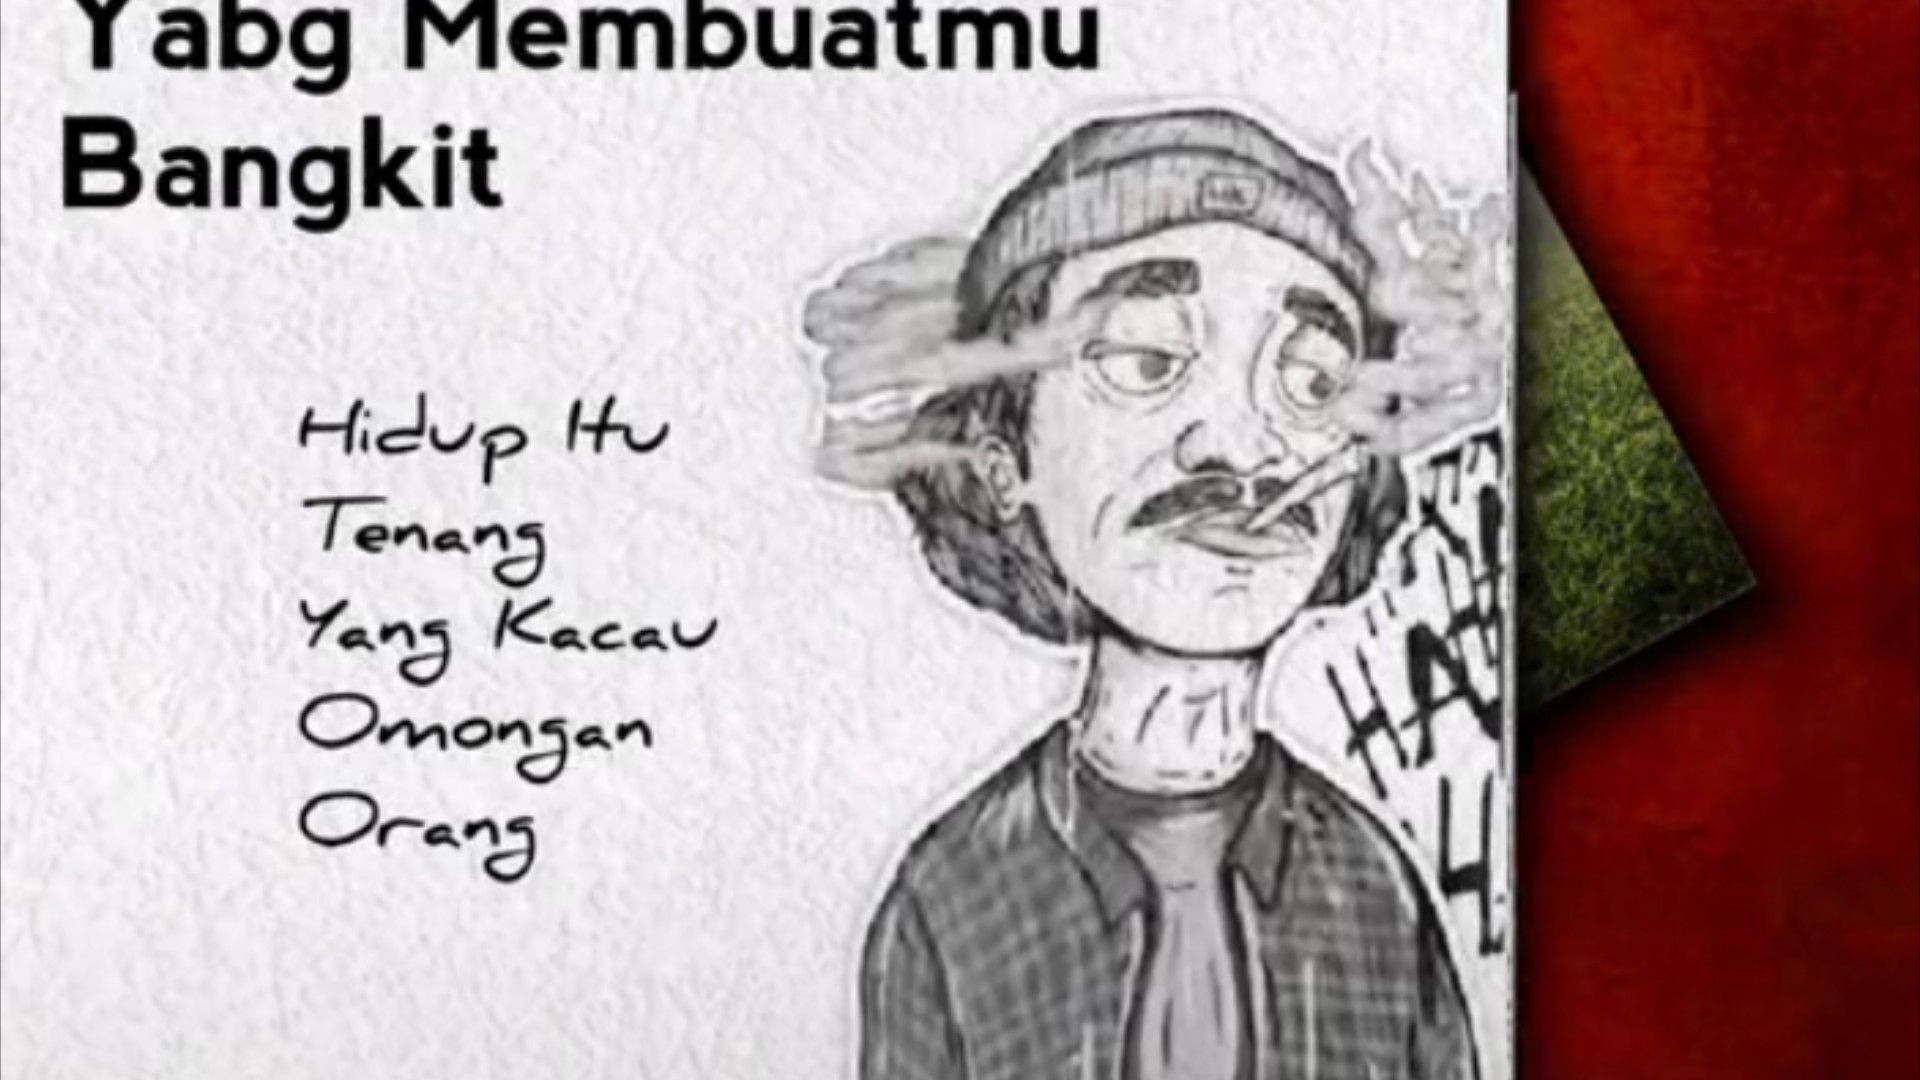 Yabg Membuatmu
Bangkit
Hidup Itu
Tenang
Yang Kacau
Omongan
Orang
17
HA
4